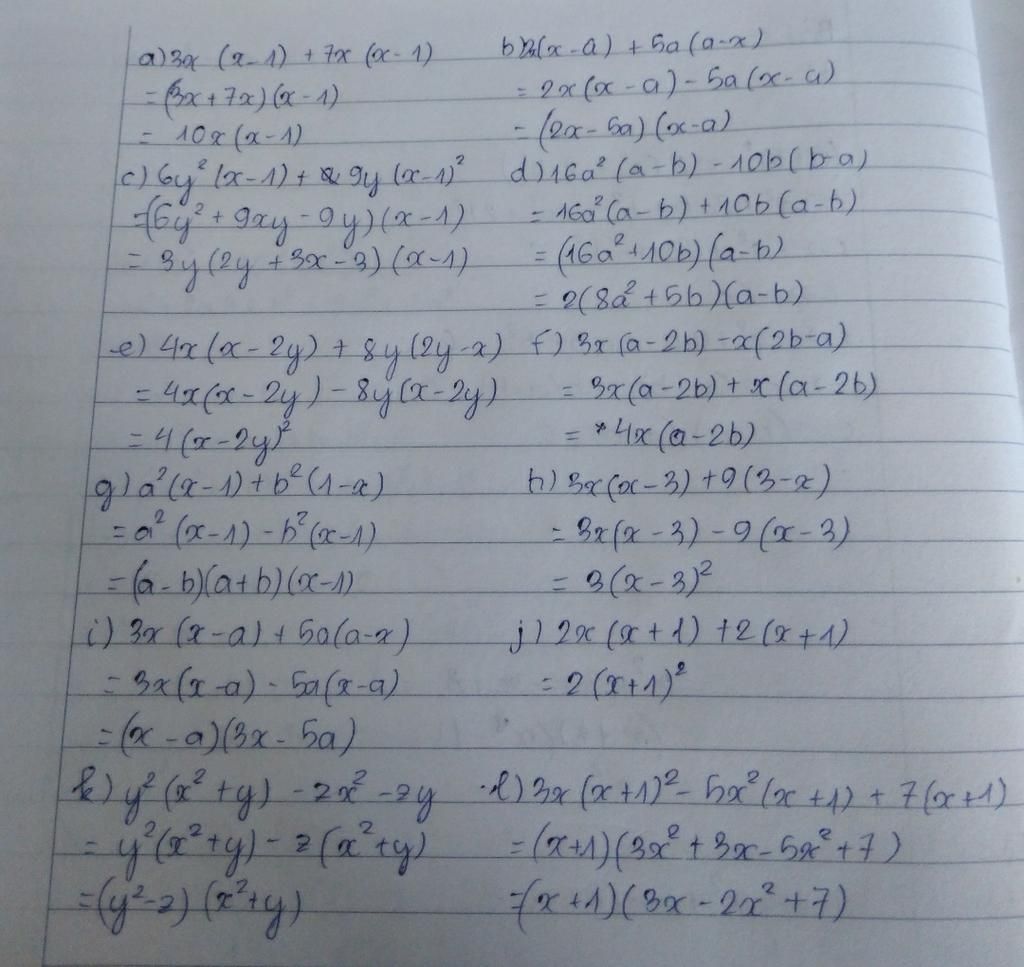 a) 3x (x-1) + 7x (x-1)
= (3x+7x)(x-1)
= 10x(x-1)
b) 2x(x-a) + 5a(a-x)
= 2x(x-a) - 5a(x-a)
= (2x-5a)(x-a)
c) 6y²(x-1) + 9y(x-1)²
= (6y² + 9xy - 9y)(x-1)
= 3y(2y + 3x - 3)(x-1)
d) 16a²(a-b) - 10b(b-a)
= 16a²(a-b) + 10b(a-b)
= (16a²+10b)(a-b)
= 2(8a²+5b)(a-b)
e) 4x(x-2y) + 8y(2y-x)
= 4x(x-2y) - 8y(x-2y)
= 4(x-2y)²
f) 3x(a-2b) - x(2b-a)
= 3x(a-2b) + x(a-2b)
= 4x(a-2b)
g) a²(x-1) + b²(1-x)
= a²(x-1) - b²(x-1)
= (a-b)(a+b)(x-1)
h) 3x(x-3) + 9(3-x)
= 3x(x-3) - 9(x-3)
= 3(x-3)²
i) 3x(x-a) + 5a(a-x)
= 3x(x-a) - 5a(x-a)
= (x-a)(3x-5a)
j) 2x(x+1) + 2(x+1)
= 2(x+1)²
k) y²(x²+y) - zx² - zy
= y²(x²+y) - z(x²+y)
= (y²-z)(x²+y)
l) 3x(x+1)² - 5x²(x+1) + 7(x+1)
= (x+1)(3x²+3x-5x²+7)
= (x+1)(3x-2x²+7)